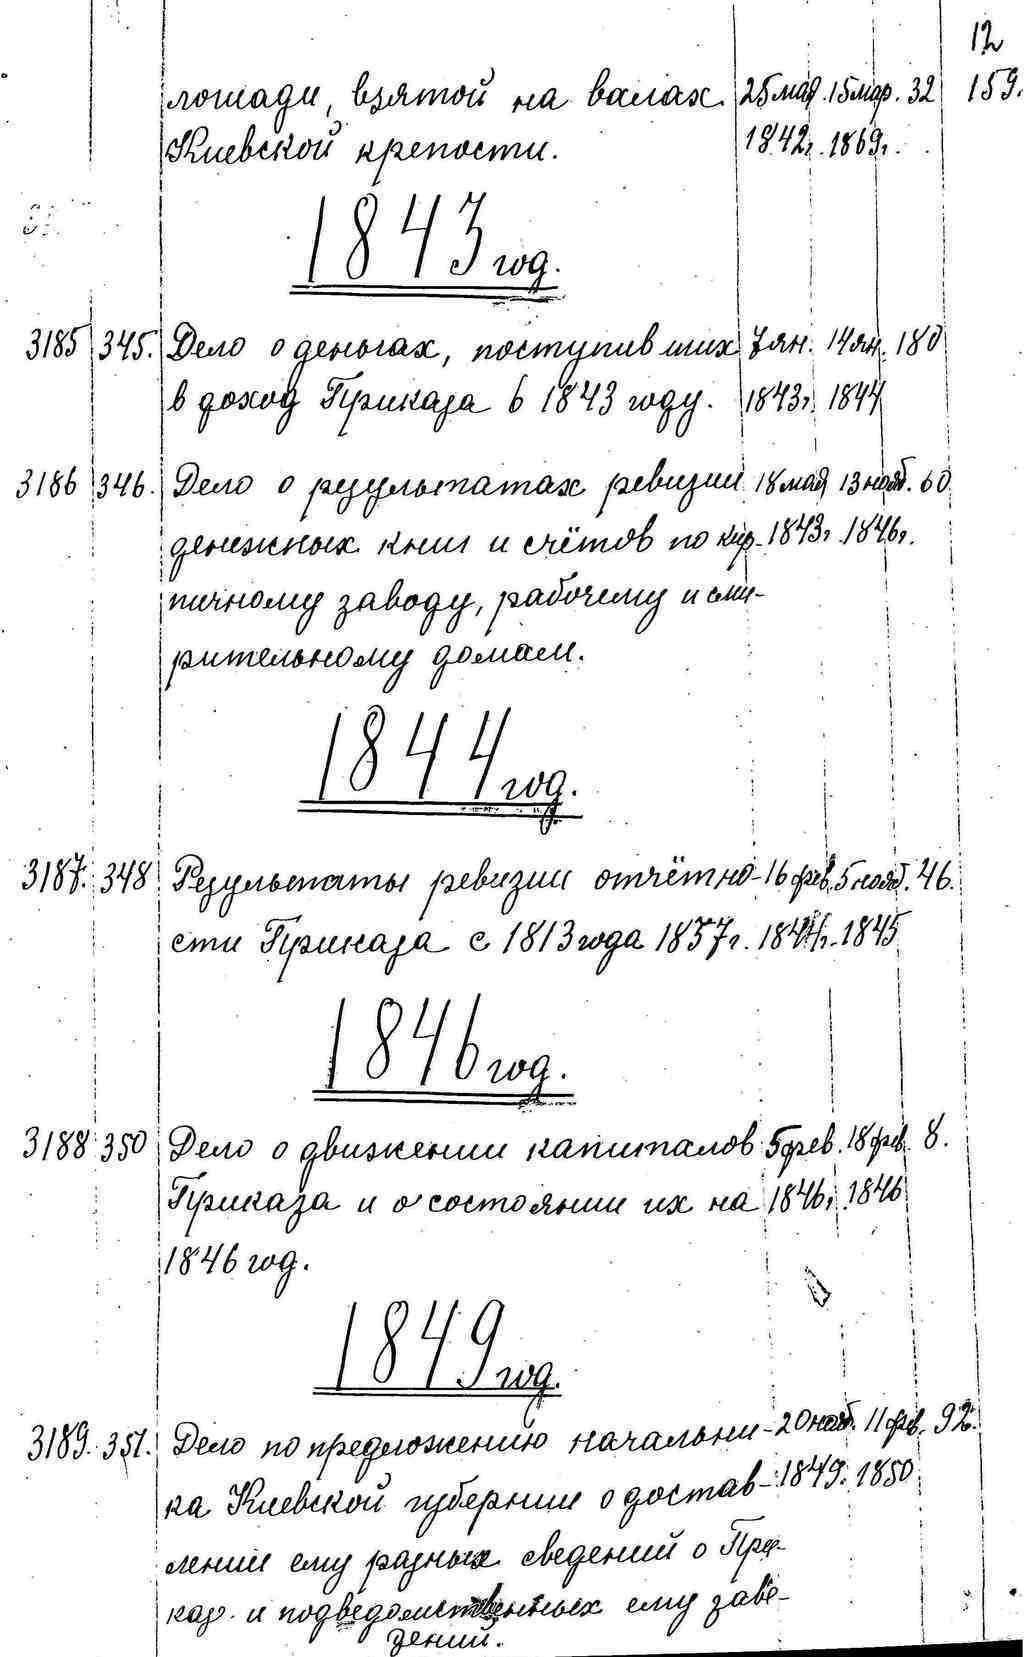 12
лошади, взятой на валах 25 мая 15 мар. 32 159.
Киевской крепости. 1842г. 1869г.
1843 год.
3185 345. Дело о деньгах, поступивших 7 ян. 14 ян. 180
в доход Приказа в 1843 году. 1843г. 1844
3186 346. Дело о результатах ревизии 18 мая 13 нояб. 60
денежных книг и счётов по кир- 1843г. 1846г.
пичному заводу, рабочему и сми-
рительному домам.
1844 год.
3187. 348 Результаты ревизии отчётно- 16 фев. 5 нояб. 46.
сти Приказа с 1813 года 1837г. 1844г. 1845
1846 год.
3188 350 Дело о движении капиталов 5 фев. 18 фев. 8.
Приказа и о состоянии их на 1846г. 1846
1846 год.
1849 год.
3189. 351. Дело по предложению начальни- 20 нояб. 11 фев. 92.
ка Киевской губернии о достав- 1849. 1850
лении ему разных сведений о При-
каз. и подведомственных ему заве-
дений.